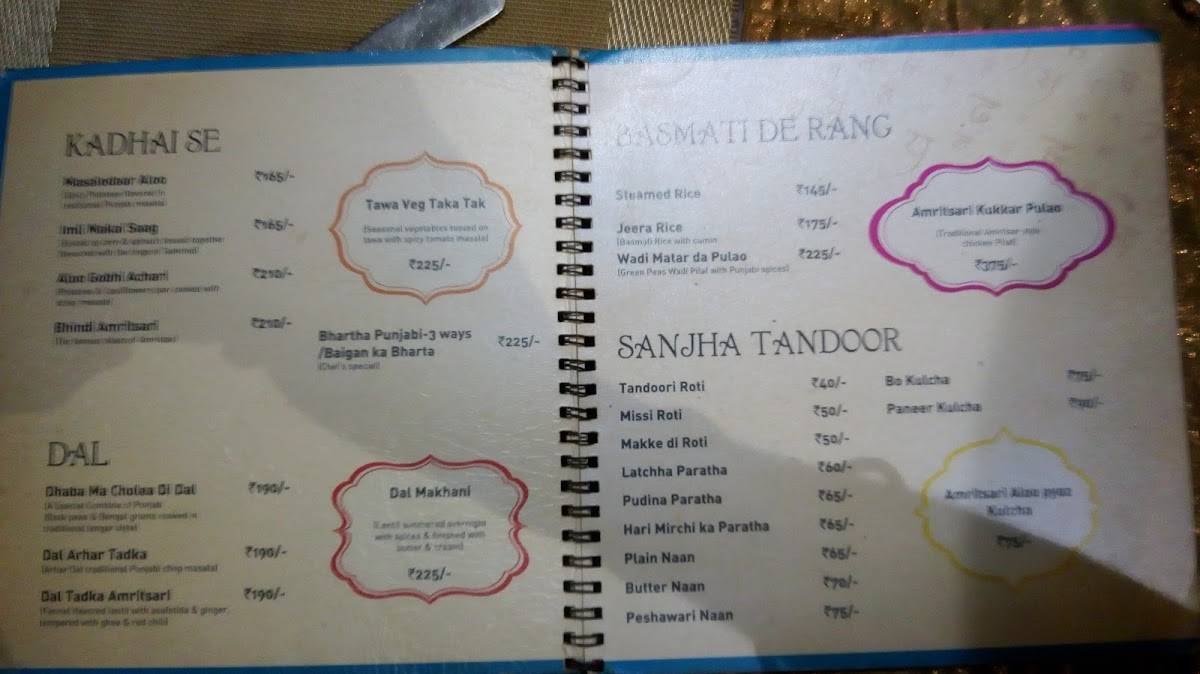 KADHAI SE
Masaledaar Aloo ₹165/-
Imli Wala Saag ₹165/-
Aloo Gobhi Achari ₹210/-
Bhindi Amritsari ₹210/-
Tawa Veg Taka Tak
(Seasonal vegetables tossed on
tawa with spicy tomato masala)
₹225/-
Bhartha Punjabi-3 ways ₹225/-
/Baigan ka Bharta
(Chef's special)
DAL
Dhaba Ma Cholaa Di Dal ₹190/-
Dal Arhar Tadka ₹190/-
(Arhar Dal traditional Punjabi chop masala)
Dal Tadka Amritsari ₹190/-
(Fennel flavored lentil with asafetida & ginger,
tempered with ghee & red chili)
Dal Makhani
(Lentil simmered overnight
with spices & finished with
butter & cream)
₹225/-
BASMATI DE RANG
Steamed Rice ₹145/-
Jeera Rice ₹175/-
(Basmati Rice with cumin
Wadi Matar da Pulao ₹225/-
(Green Peas Wadi Pilaf with Punjabi spices)
Amritsari Kukkar Pulao
(Traditional Amritsar style
chicken Pilaf)
₹375/-
SANJHA TANDOOR
Tandoori Roti ₹40/-
Missi Roti ₹50/-
Makke di Roti ₹50/-
Latchha Paratha ₹60/-
Pudina Paratha ₹65/-
Hari Mirchi ka Paratha ₹65/-
Plain Naan ₹65/-
Butter Naan ₹70/-
Peshawari Naan ₹75/-
Bo Kulcha ₹75/-
Paneer Kulcha ₹90/-
Amritsari Aloo pyaz
Kulcha
₹75/-